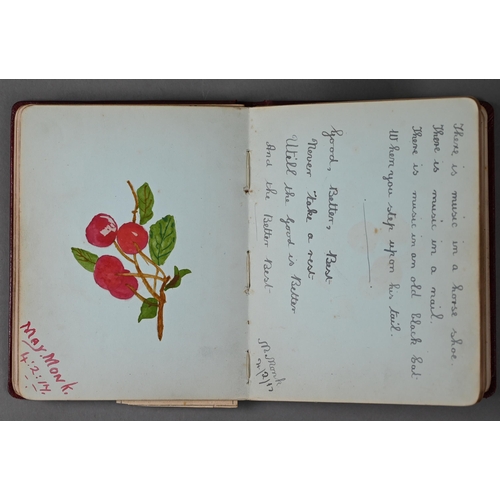 MAY. MONK.
4:2:17.
There is music in a horse shoe
There is music in a nail
There is music in an old black Cat
When you step upon his tail.
Good, Better, Best
Never take a rest
Utill the Good is Better
And the Better Best
M. Monk